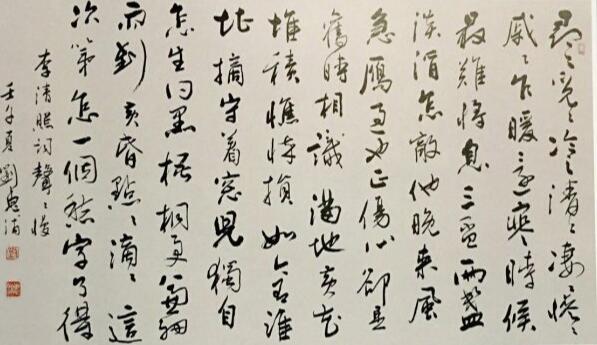 尋々覓々冷々清々凄々慘々
戚々乍暖還寒時候
最難將息三盃兩盞
淡酒怎敵他晚來風
急雁過也正傷心卻是
舊時相識滿地黃花
堆積憔悴損如今誰
堪摘守着窓兒獨自
怎生得黑梧桐更兼細
雨到黃昏點々滴々這
次第怎一個愁字了得
李清照詞聲々慢
壬午夏劉忠